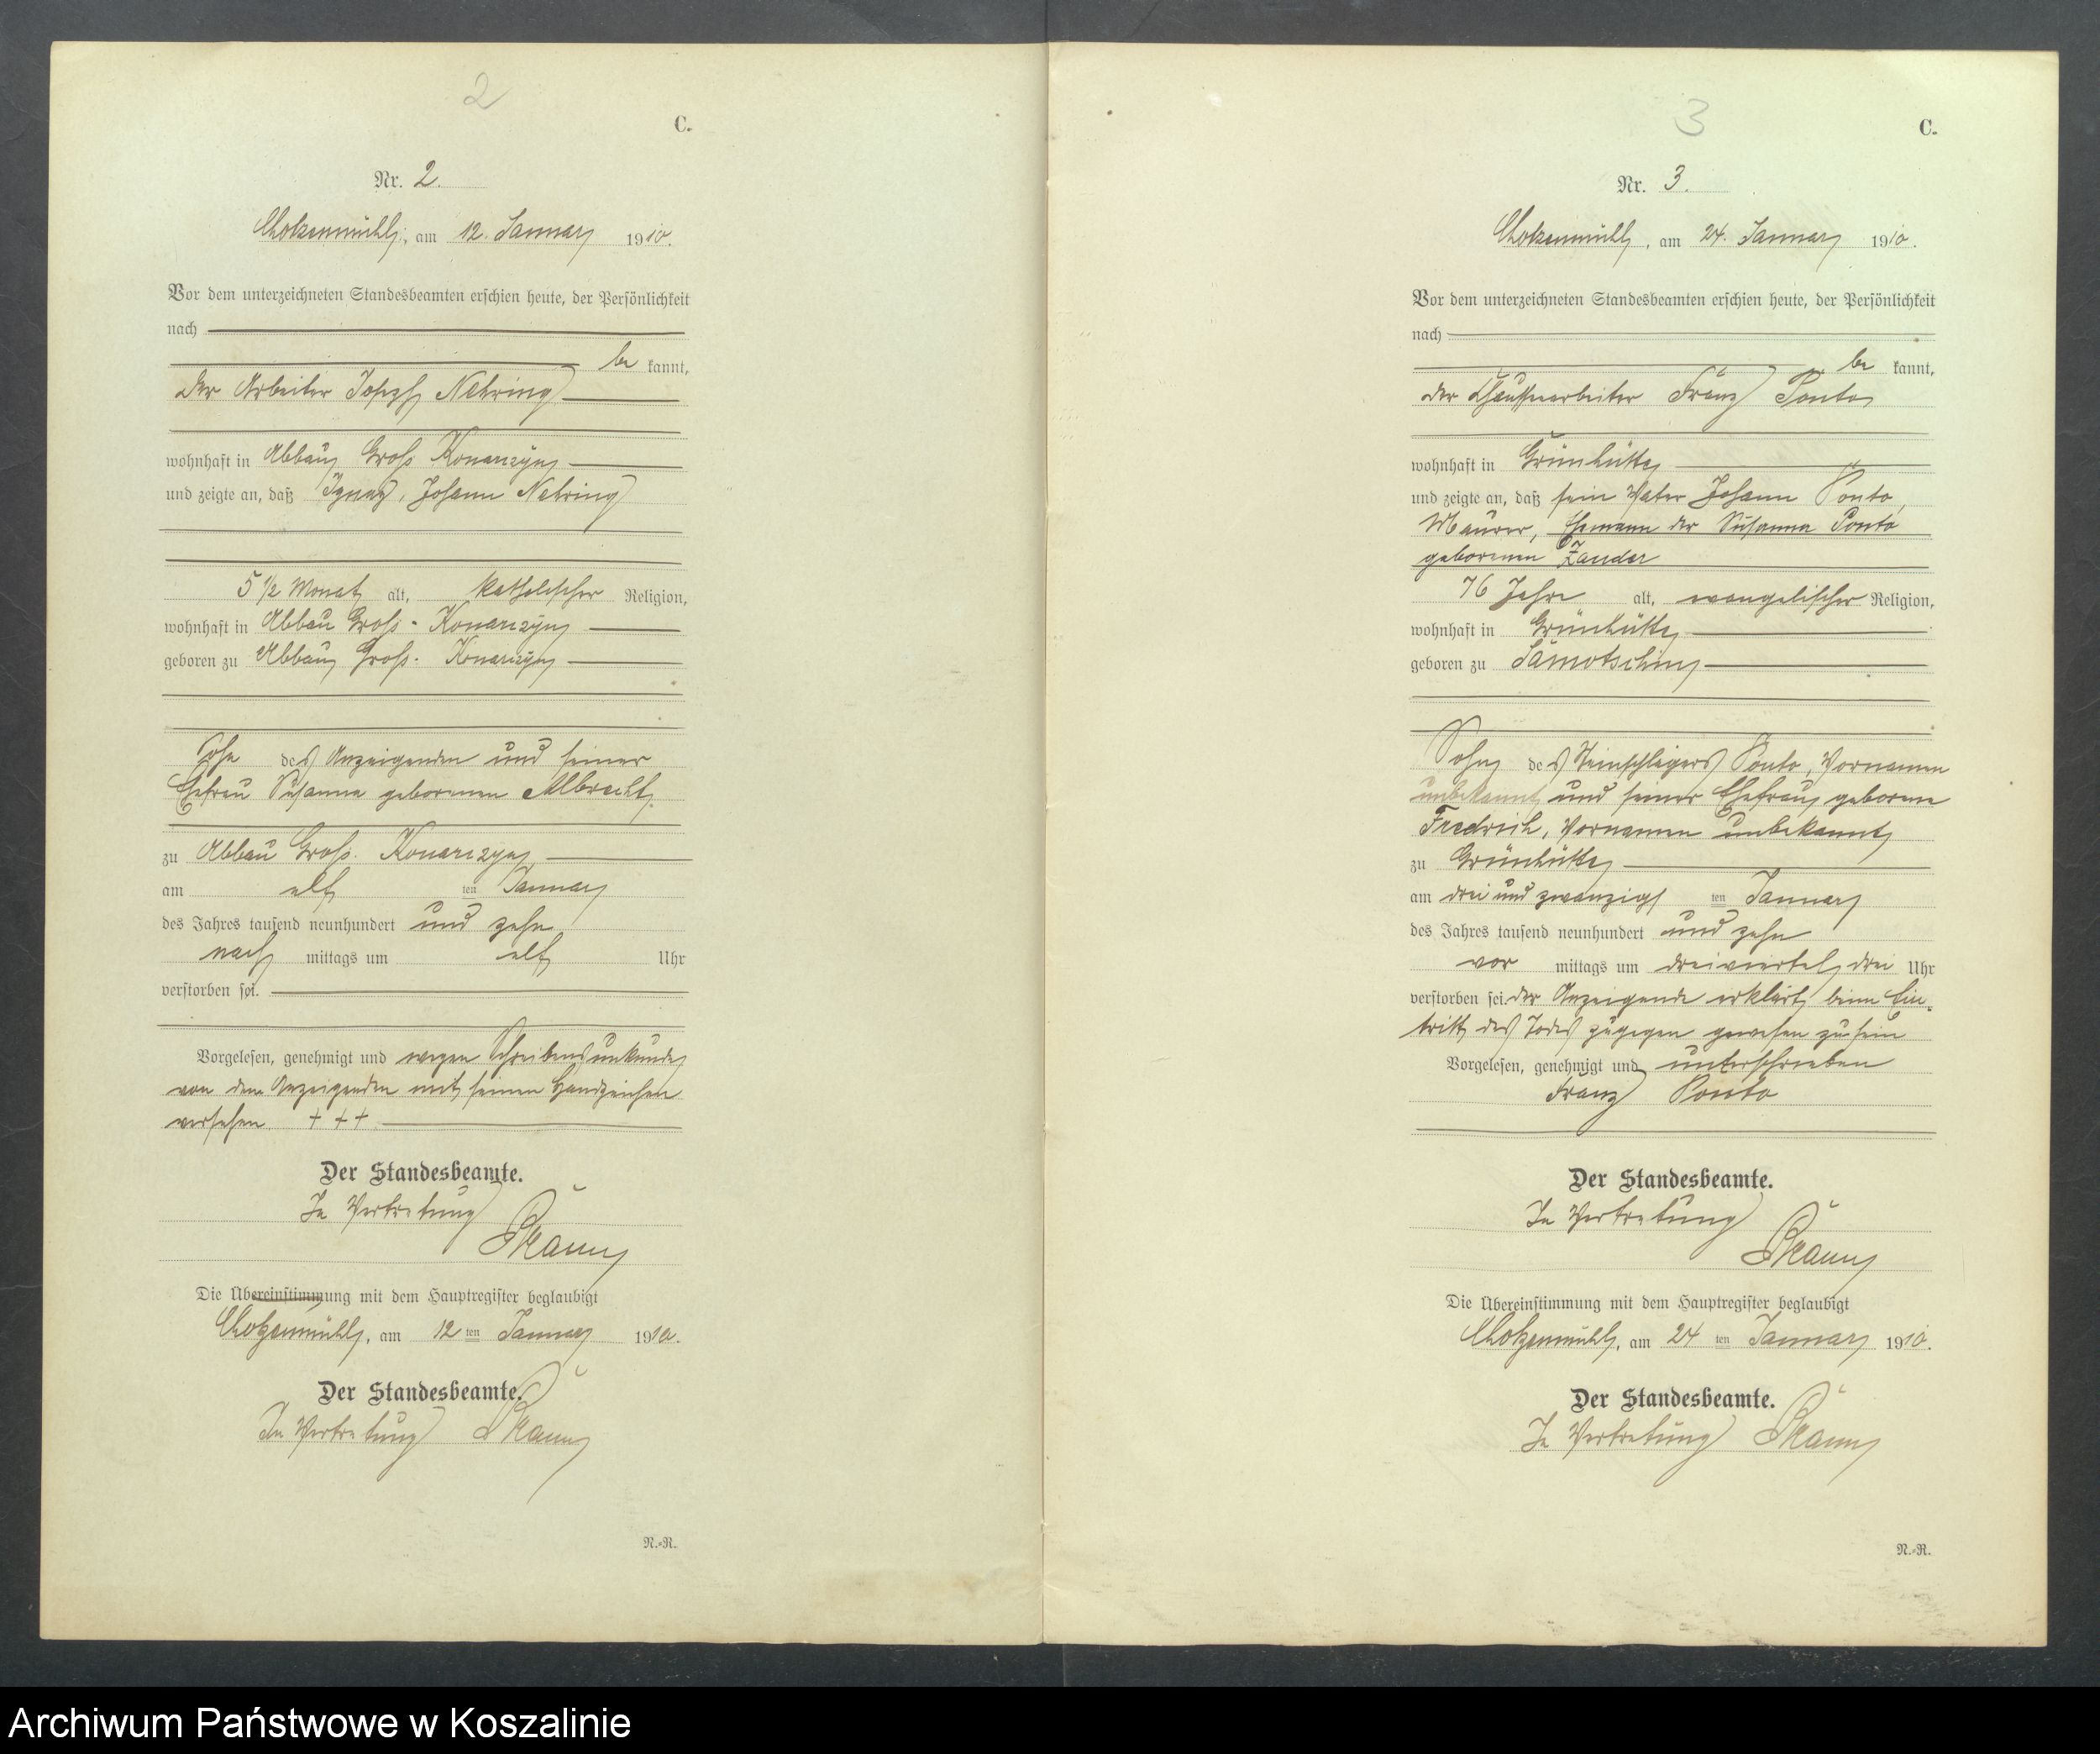 2
C.
Nr. 2.
Chotzenmühl, am 12. Januar 1910.
Vor dem unterzeichneten Standesbeamten erschien heute, der Persönlichkeit
nach
be kannt,
der Arbeiter Joseph Nehring
wohnhaft in Abbau Groß Konarczyn
und zeigte an, daß Ignaz, Johann Nehring
5 1/2 Monat alt, katholischer Religion,
wohnhaft in Abbau Groß-Konarczyn
geboren zu Abbau Groß-Konarczyn
Sohn des Anzeigenden und seiner
Ehefrau Susanna geborenen Albrecht,
zu Abbau Groß-Konarczyn
am elf ten Januar
des Jahres tausend neunhundert und zehn
nach mittags um elf Uhr
verstorben sei.
Vorgelesen, genehmigt und wegen Schreibensunkunde
von dem Anzeigenden mit seinen Handzeichen
versehen + + +
Der Standesbeamte.
In Vertretung
Die Übereinstimmung mit dem Hauptregister beglaubigt
Chotzenmühl, am 12 ten Januar 1910.
Der Standesbeamte.
In Vertretung
N.-R.
3
C.
Nr. 3.
Chotzenmühl, am 24. Januar 1910.
Vor dem unterzeichneten Standesbeamten erschien heute, der Persönlichkeit
nach
be kannt,
der Chausseearbeiter Franz Ponto
wohnhaft in Grünhütte
und zeigte an, daß sein Vater Johann Ponto,
Maurer, Ehemann der Susanna Ponto
geborenen Zander
76 Jahre alt, evangelischer Religion,
wohnhaft in Grünhütte
geboren zu Samotschin
Sohn des Steinschlägers Ponto, Vornamen
unbekannt und seiner Ehefrau geborene
Fredrich, Vornamen unbekannt
zu Grünhütte
am drei und zwanzigs ten Januar
des Jahres tausend neunhundert und zehn
vor mittags um dreiviertel drei Uhr
verstorben sei. der Anzeigende erklärt, beim Ein-
tritt des Todes zugegen gewesen zu sein
Vorgelesen, genehmigt und unterschrieben
Franz Ponto
Der Standesbeamte.
In Vertretung
Die Übereinstimmung mit dem Hauptregister beglaubigt
Chotzenmühl, am 24 ten Januar 1910.
Der Standesbeamte.
In Vertretung
N.-R.
Archiwum Państwowe w Koszalinie